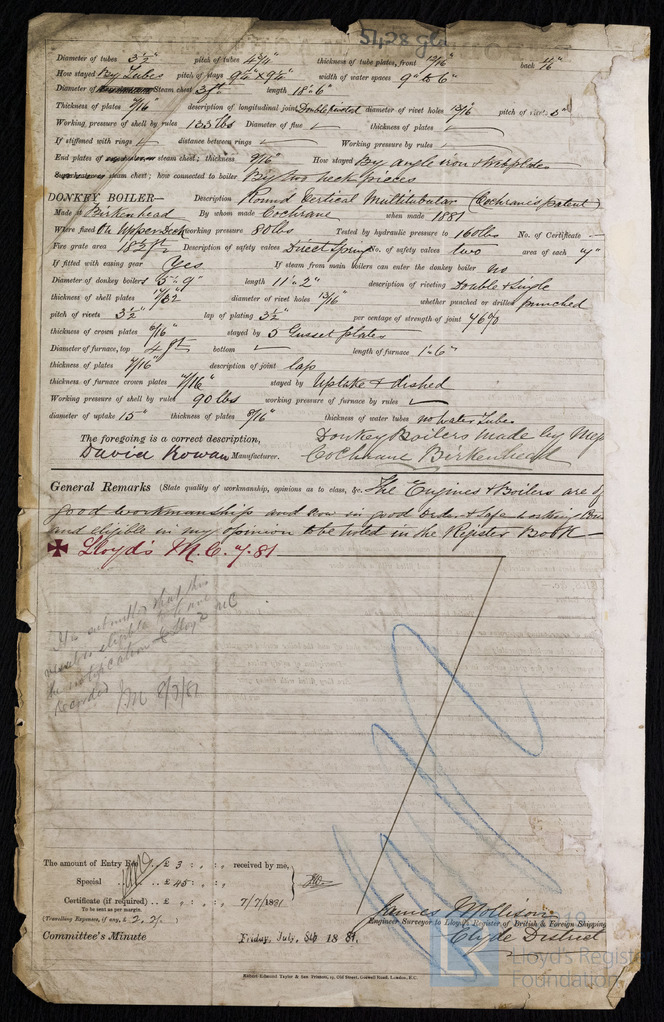 5428 gla
Diameter of tubes 3½" pitch of tubes 4¾" thickness of tube plates, front 13/16" back 11/16"
How stayed By Tubes pitch of stays 9½" x 9½" width of water spaces 9" to 6"
Diameter of Steam chest 3 ft length 18"6"
Thickness of plates 9/16" description of longitudinal joint Double riveted diameter of rivet holes 13/16" pitch of rivets 3"
Working pressure of shell by rules 133 lbs Diameter of flue ✓ thickness of plates ✓
If stiffened with rings ✓ distance between rings ✓ Working pressure by rules ✓
End plates of steam chest; thickness 9/16" How stayed By angle iron & webplates
Superheater or steam chest; how connected to boiler By two neck pieces
DONKEY BOILER— Description Round Vertical Multitubular (Cochrane's patent)
Made at Birkenhead By whom made Cochrane when made 1881
Where fixed On Upper Deck working pressure 80 lbs Tested by hydraulic pressure to 160 lbs No. of Certificate —
Fire grate area 18½ ft Description of safety valves Direct Spring No. of safety valves two area of each "4"
If fitted with easing gear Yes If steam from main boilers can enter the donkey boiler no
Diameter of donkey boilers 5"9" length 11"2" description of riveting Double & Single
thickness of shell plates 17/32" diameter of rivet holes 13/16" whether punched or drilled punched
pitch of rivets 3½" lap of plating 3½" per centage of strength of joint 76%
thickness of crown plates 9/16" stayed by 5 Gusset plates
Diameter of furnace, top 4 ft bottom ✓ length of furnace 1"6"
thickness of plates 7/16" description of joint lap
thickness of furnace crown plates 7/16" stayed by Uptake & dished
Working pressure of shell by rules 90 lbs working pressure of furnace by rules ✓
diameter of uptake 15" thickness of plates 9/16" thickness of water tubes no water Tubes
The foregoing is a correct description, Donkey Boilers made by Mess
David Rowan Manufacturer. Cochrane Birkenhead
General Remarks (State quality of workmanship, opinions as to class, &c. The Engines & Boilers are of
good workmanship and now in good order & safe working
and eligible in my opinion to be noted in the Register Book
✠ Lloyd's M.C. 7.81
It is submitted that this
vessel is eligible to have
the notification of Lloyds MC
recorded
JM 8/7/81
The amount of Entry Fee £ 3 : , : , received by me,
Special £ 45 : , : ,
Certificate (if required) £ , : , : , 7/7/1881
To be sent as per margin.
(Travelling Expenses, if any, £ 2.2)
James Mollison
Engineer Surveyor to Lloyd's Register of British & Foreign Shipping
Clyde District
Committee's Minute Friday, July, 8th 18 81.
Lloyd's Register
Foundation